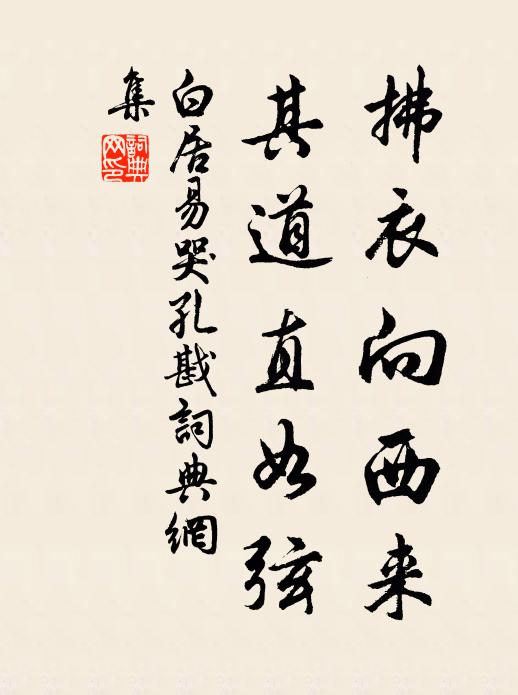 拂衣向西来
其道直如弦
白居易哭孔戡詞典網
集
詞典網印